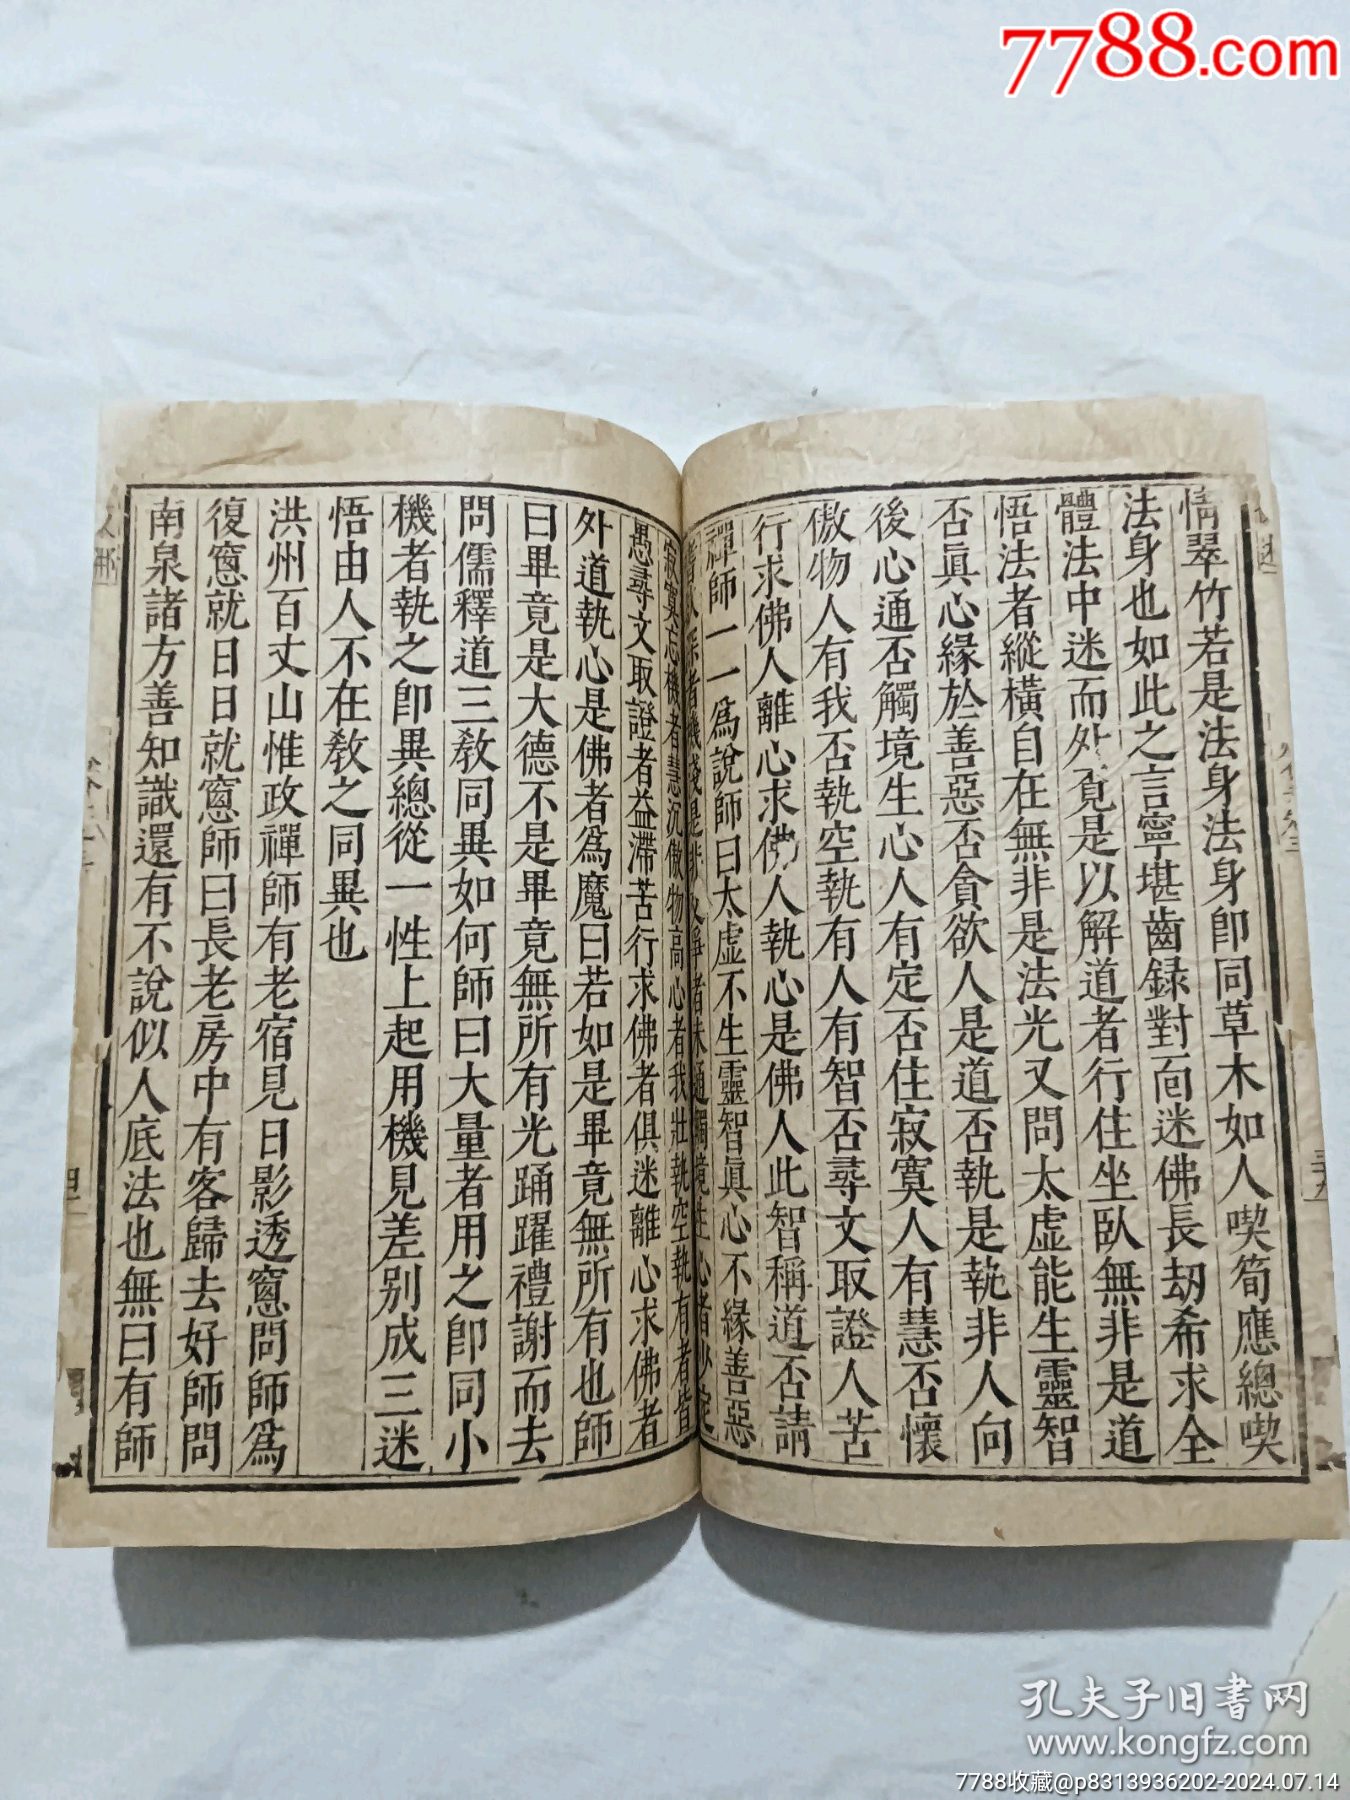 7788.com
情翠竹若是法身法身卽同草木如人喫筍應總喫
法身也如此之言寧堪齒錄對面迷佛長劫希求全
體法中迷而外覔是以解道者行住坐臥無非是道
悟法者縱橫自在無非是法光又問太虛能生靈智
否眞心緣於善惡否貪欲人是道否執是執非人向
後心通否觸境生心人有定否住寂寞人有慧否懷
傲物人有我否執空執有人有智否尋文取證人苦
行求佛人離心求佛人執心是佛人此智稱道否請
禪師一一爲說師曰太虛不生靈智眞心不緣善惡
者機淺是非交爭者未通觸境生心者少定
寂寞忘機者慧沉傲物高心者我壯執空執有者皆
愚尋文取證者益滯苦行求佛者俱迷離心求佛者
外道執心是佛者爲魔曰若如是畢竟無所有也師
曰畢竟是大德不是畢竟無所有光踊躍禮謝而去
問儒釋道三敎同異如何師曰大量者用之卽同小
機者執之卽異總從一性上起用機見差别成三迷
悟由人不在敎之同異也
洪州百丈山惟政禪師有老宿見日影透窻問師爲
復窻就日日就窻師曰長老房中有客歸去好師問
南泉諸方善知識還有不說似人底法也無曰有師
孔夫子旧書网
www.kongfz.com
7788收藏@p8313936202-2024.07.14